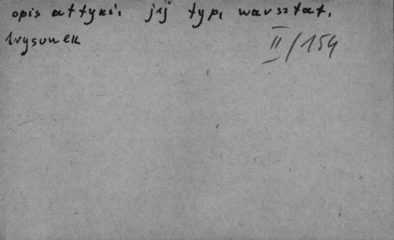 opis attyki, jej typ, warsztat,
1rysunek
II/154